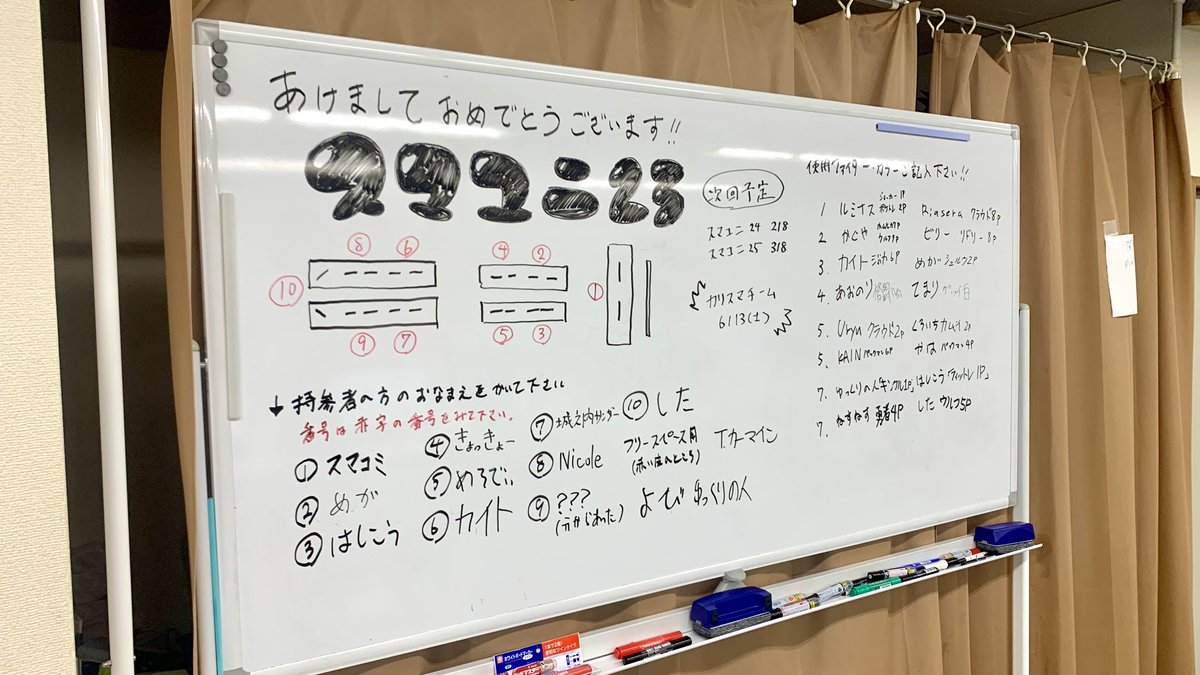 あけまして おめでとうございます!!
スマコミ23
⑧ ⑥ ④ ②
⑩ ①
⑨ ⑦ ⑤ ③
次回予定
スマコミ 24 2/8
スマコミ 25 3/8
カリスマチーム
6/13(土)
使用ファイター・カラーご記入下さい!!
1 ルミイス ジョーカー1P Rinsera クラウド8P
2 かぐや ビリー リドリー8P
3. カイト 6P めが シェルフ2P
4. あおのり てまり 白
5. Uryu クラウド2P くろいち カムイ2P
5. KAIN パックマン6P やは パックマン4P
7. ゆっくりの人「キンクル1P」はしこう「フィットレ1P」
7. なすなす 勇者4P した ウルフ5P
↓持参者へ方のおなまえをかいて下さい
番号は赤字の番号をみて下さい。
①スマコミ ④きょっきょー ⑦城之内サンダー ⑩した
②めが ⑤めろでぃ ⑧Nicole フリースペース用 T.カーマイン
(赤い座んところ)
③はしこう ⑥カイト ⑨??? よぴ ゆっくりの人